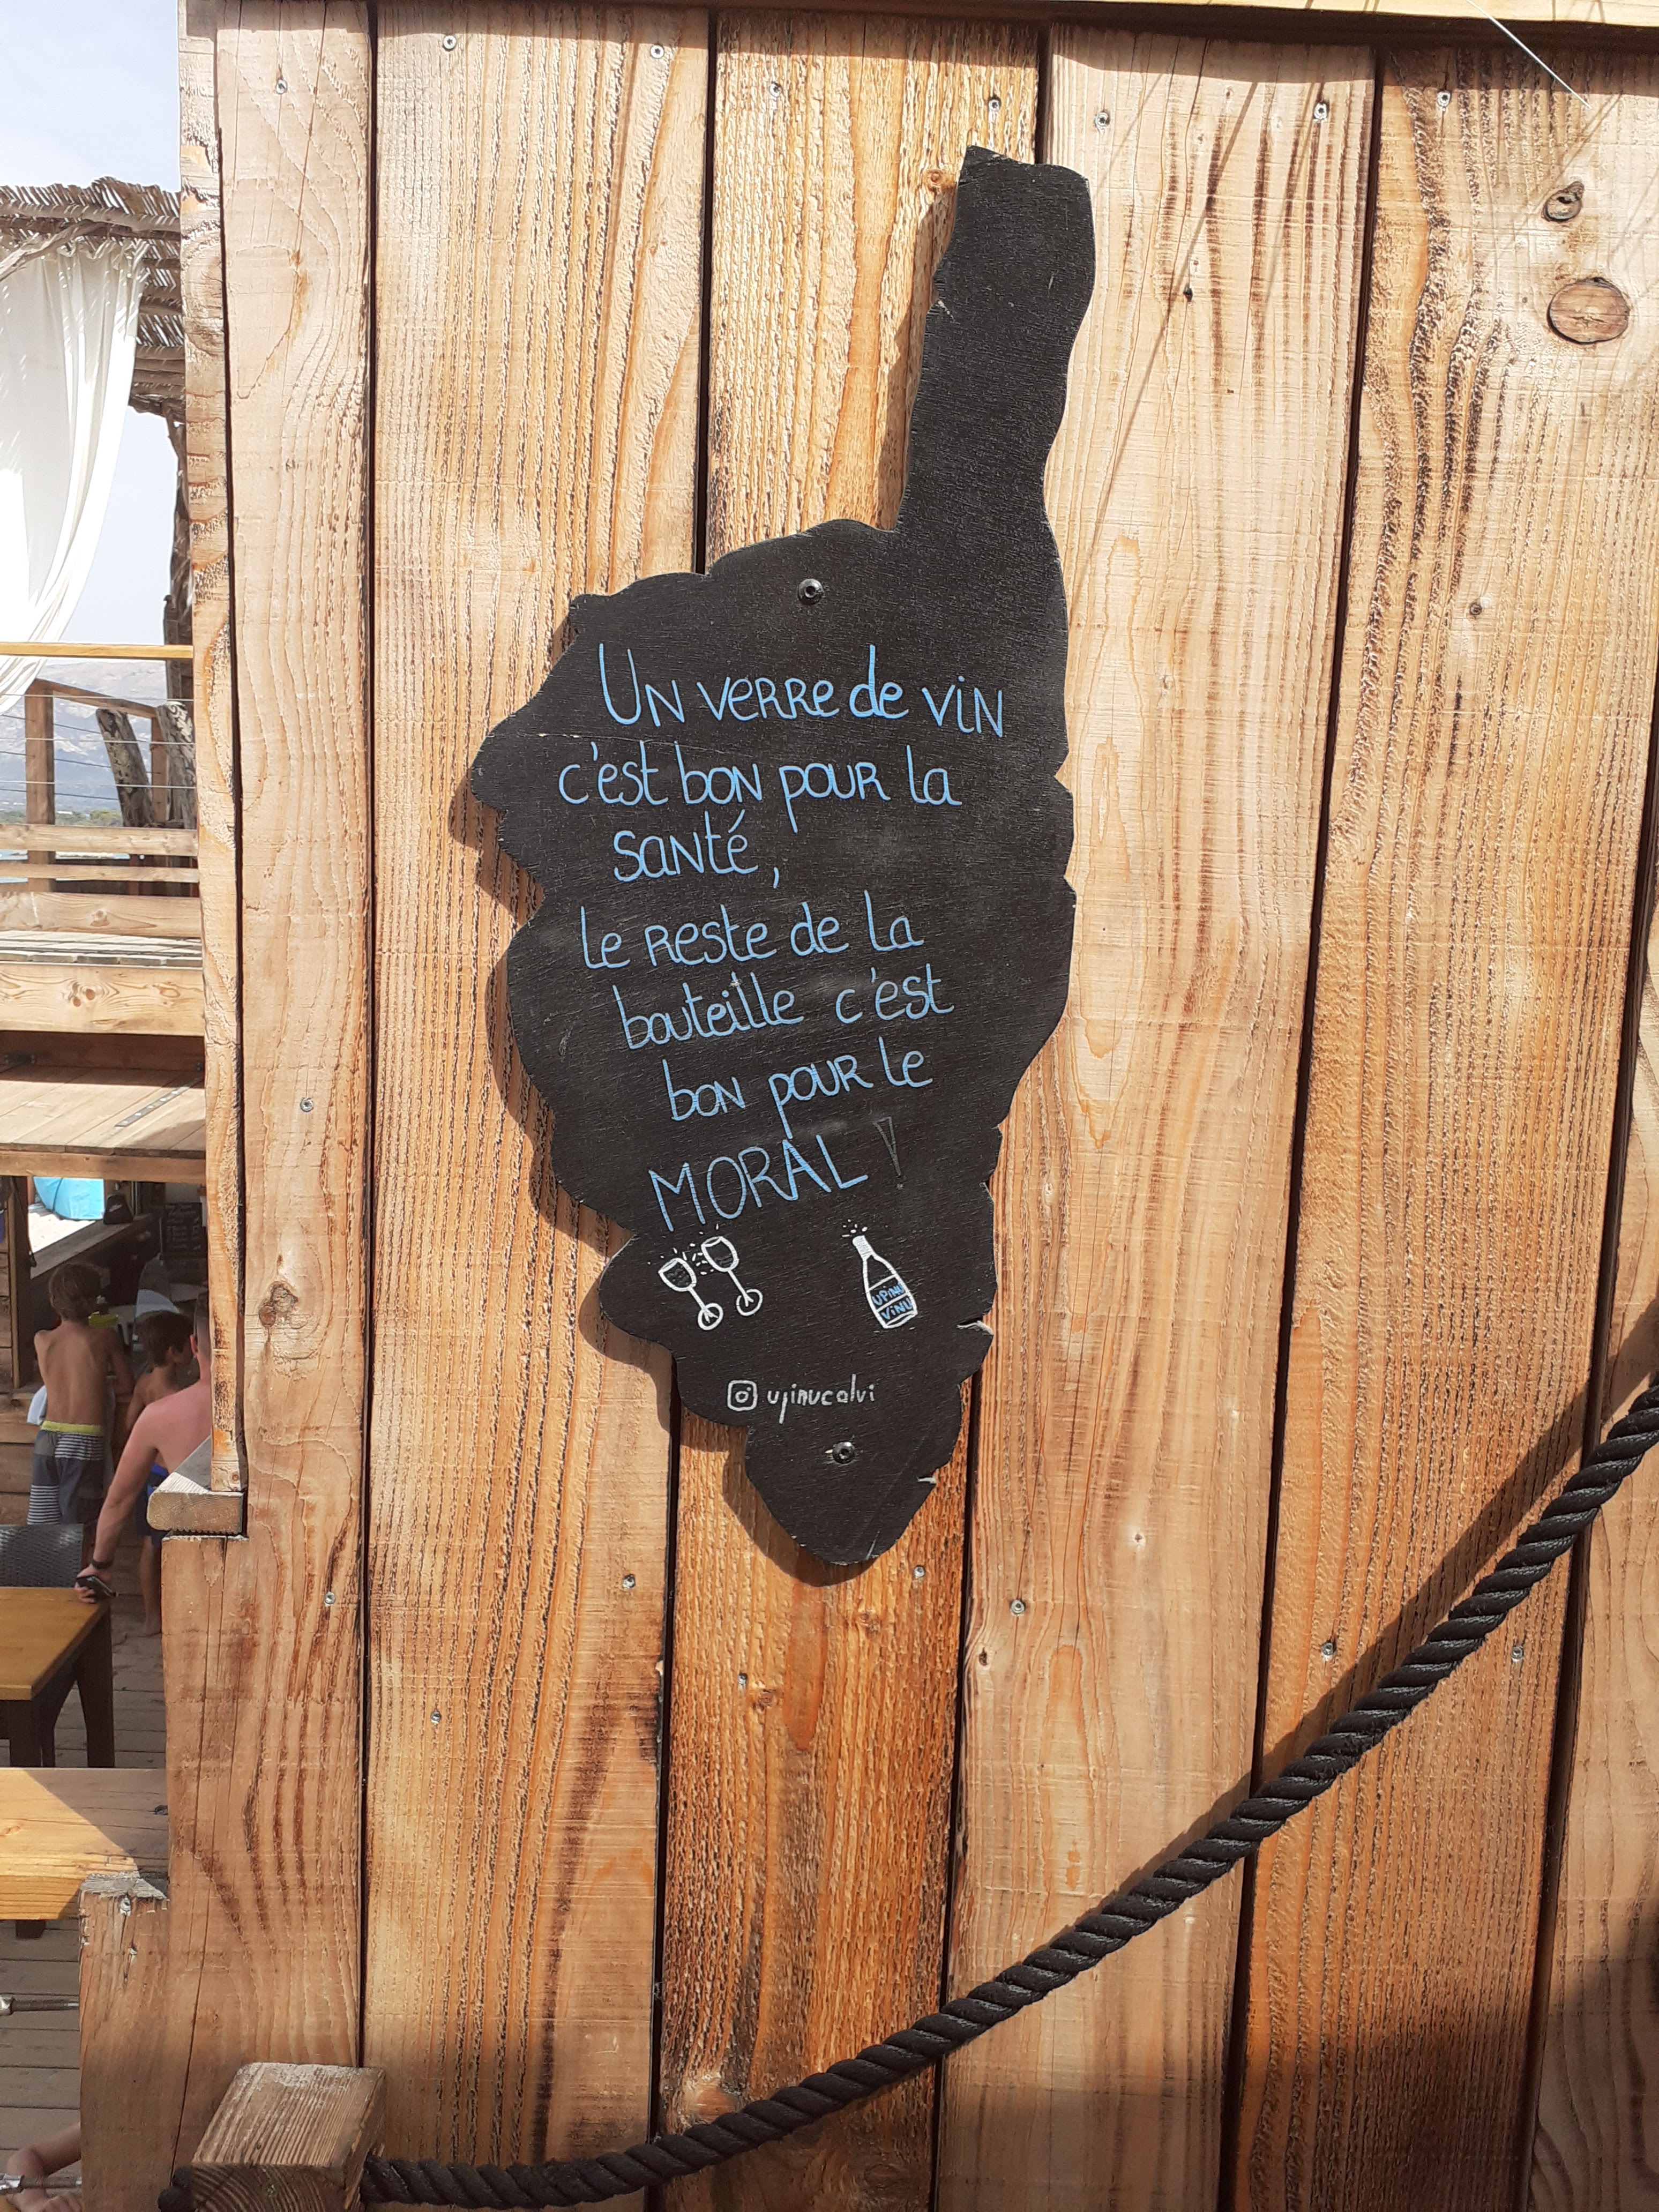 Un verre de vin
c'est bon pour la
santé,
le reste de la
bouteille c'est
bon pour le
MORAL !
UPinu
VINU
upinucalvi